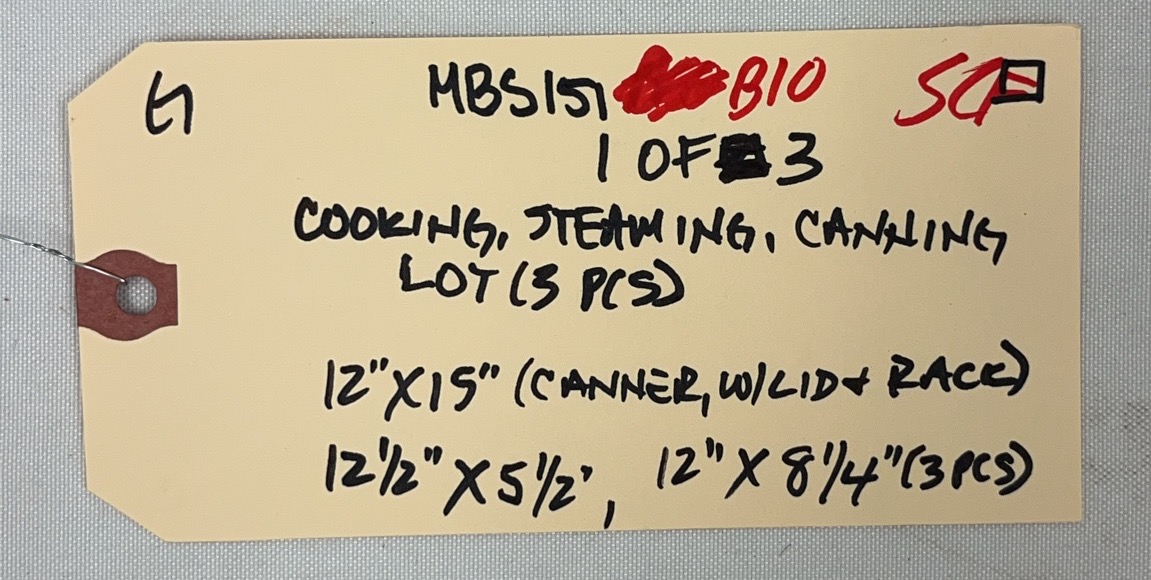 G MBS151 B10 SG
1 OF 3
COOKING, STEAMING, CANNING
LOT (3 PCS)
12" X 15" (CANNER, W/LID & RACK)
12 1/2" X 5 1/2", 12" X 8 1/4" (3 PCS)